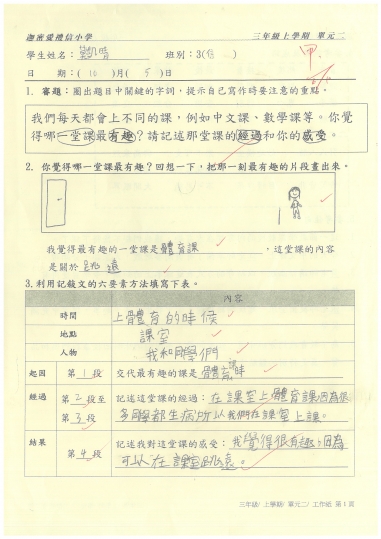 迦密愛禮信小學 三年級上學期 單元二
學生姓名: 班別:3(信)
日 期:( 10 )月( 5 )日
甲
1. 審題:圈出題目中關鍵的字詞,提示自己寫作時要注意的重點。
我們每天都會上不同的課,例如中文課、數學課等。你覺
得哪一堂課最有趣?請記述那堂課的經過和你的感受。
2. 你覺得哪一堂課最有趣?回想一下,把那一刻最有趣的片段畫出來。
我覺得最有趣的一堂課是體育課,這堂課的內容
是關於跳遠
3. 利用記敍文的六要素方法填寫下表。
內容
時間 上體育的時候
地點 課室
人物 我和同學們
起因 第 1 段 交代最有趣的課是體育課
經過 第 2 段至 記述這堂課的經過:在課室上體育課因為很
第 3 段 多同學都生病所以我們在課室上課。
結果 第 4 段 記述我對這堂課的感受:我覺得很有趣,因為
可以在課室跳遠。
三年級/ 上學期/ 單元二/ 工作紙 第1頁